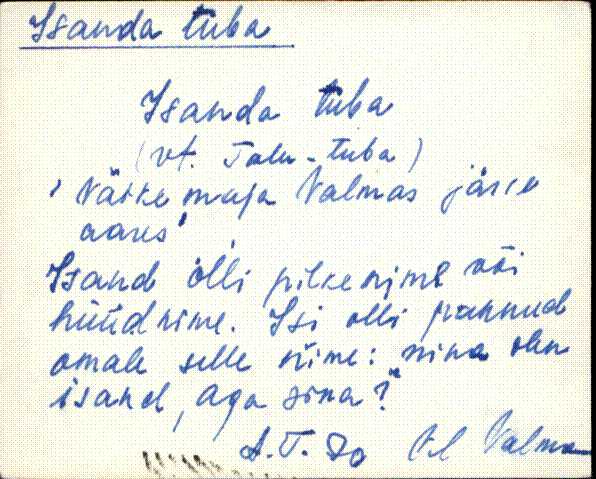 Isanda tuba
Isanda tuba
(vt. Talu-tuba)
'Väike maja Valmas järve
aares'
Isand olli pilkenime või
hüüdnime. Isi olli pannud
omale selle nime: mina olen
isand, aga sina?"
A.T. 70 Vil Valma